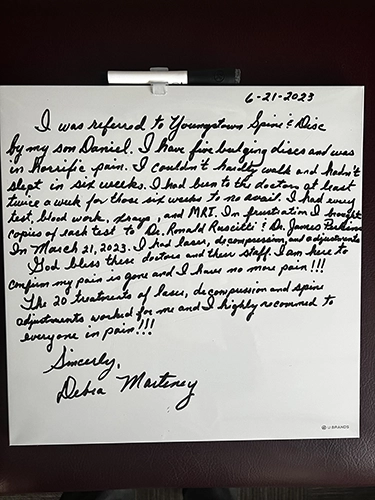 6-21-2023
I was referred to Youngstown Spine & Disc
by my son Daniel. I have five bulging discs and was
in horrific pain. I couldn't hardly walk and hadn't
slept in six weeks. I had been to the doctors at least
twice a week for those six weeks to no avail. I had every
test, blood work, xrays, and MRI. In frustration I brought
copies of each test to Dr. Ronald Ruscitti & Dr. James Perkins
In March 21, 2023. I had laser, decompression, and adjustments
God bless these doctors and their staff. I am here to
confirm my pain is gone and I have no more pain!!!
The 20 treatments of laser, decompression and spine
adjustments worked for me and I highly recommed to
everyone in pain!!!
Sincerly,
Debra Marteney
U BRANDS